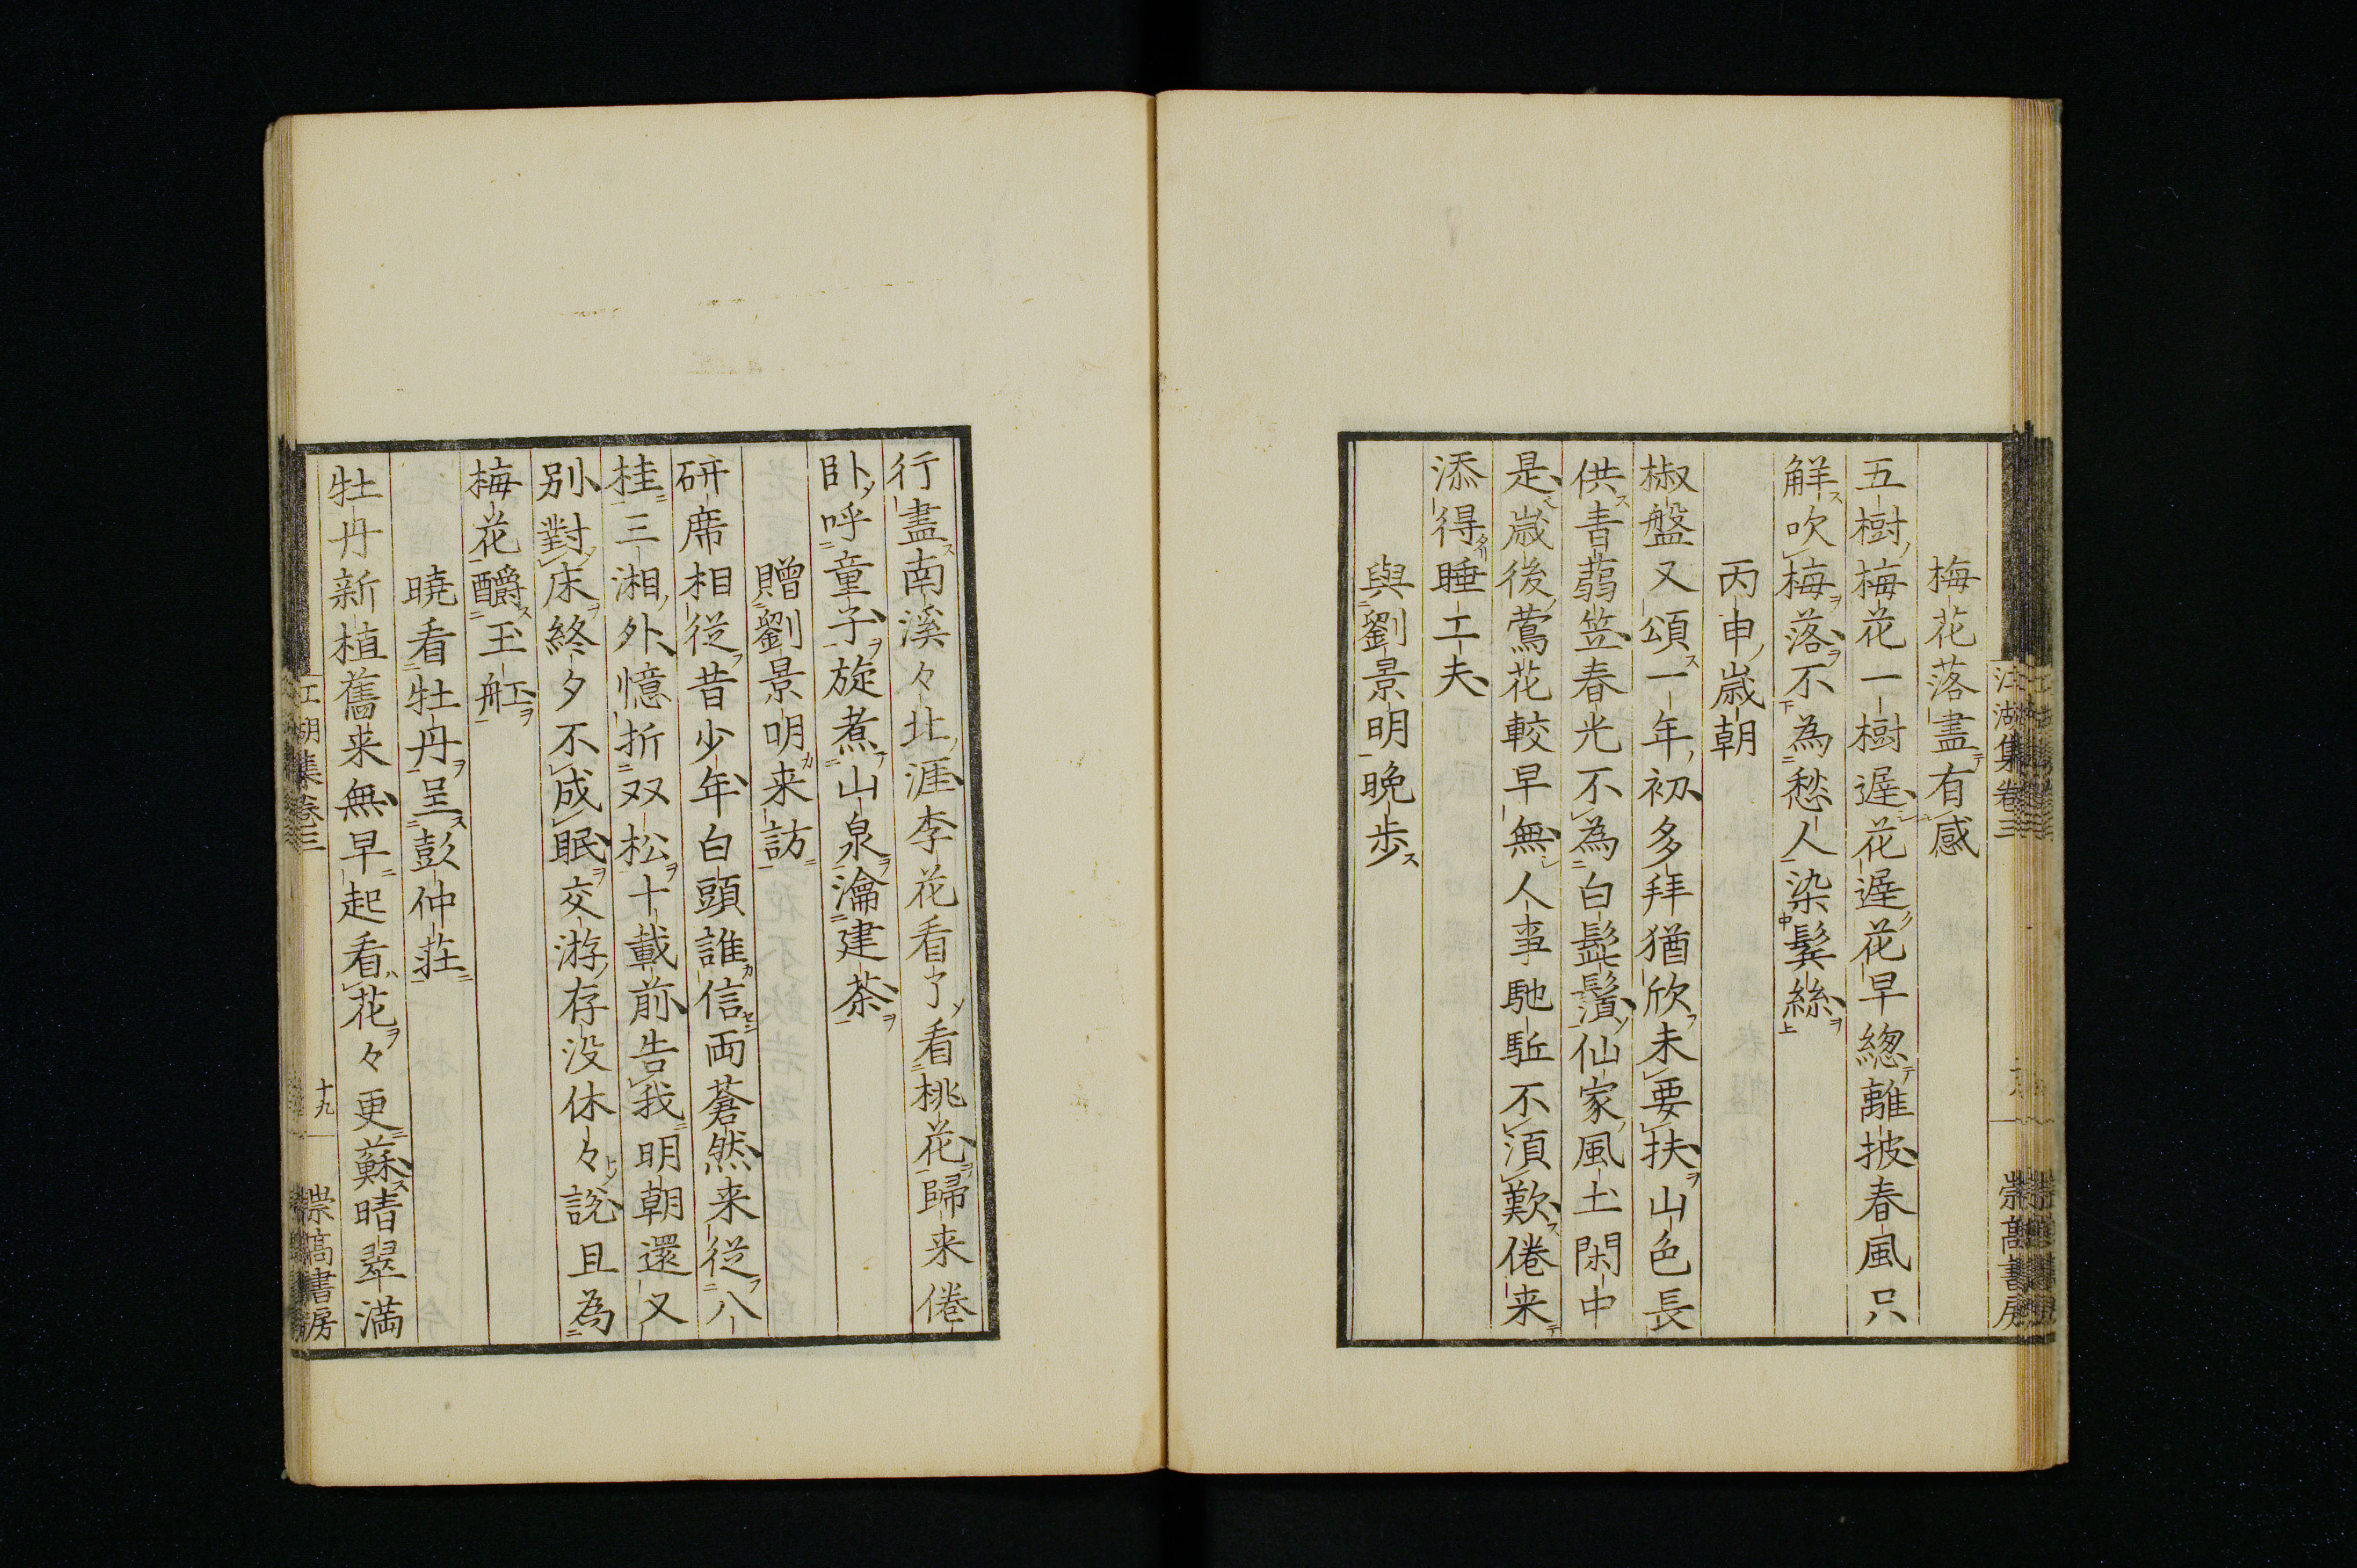 梅花落盡有感
五樹梅花一樹遲花遲花早緫離披春風只
解吹梅落不為愁人染鬂絲
丙申歳朝
椒盤又頌一年初多拜猶欣未要扶山色長
供青蒻笠春光不為白髭鬚仙家風土閑中
是歳後鶯花較早無人事馳駈不須歎倦来
添得睡工夫
與劉景明晩歩
江湖集卷三
崇高書房
行盡南溪々北涯李花看了看桃花歸来倦
卧呼童子旋煮山泉瀹建茶
贈劉景明来訪
研席相従昔少年白頭誰信両蒼然来従八
桂三湘外憶折双松十載前告我明朝還又
別對床終夕不成眠交游存没休々説且為
梅花釂玉舡
曉看牡丹呈彭仲荘
牡丹新植舊来無早起看花々更蘇晴翠満
江湖集卷三
十九
崇高書房